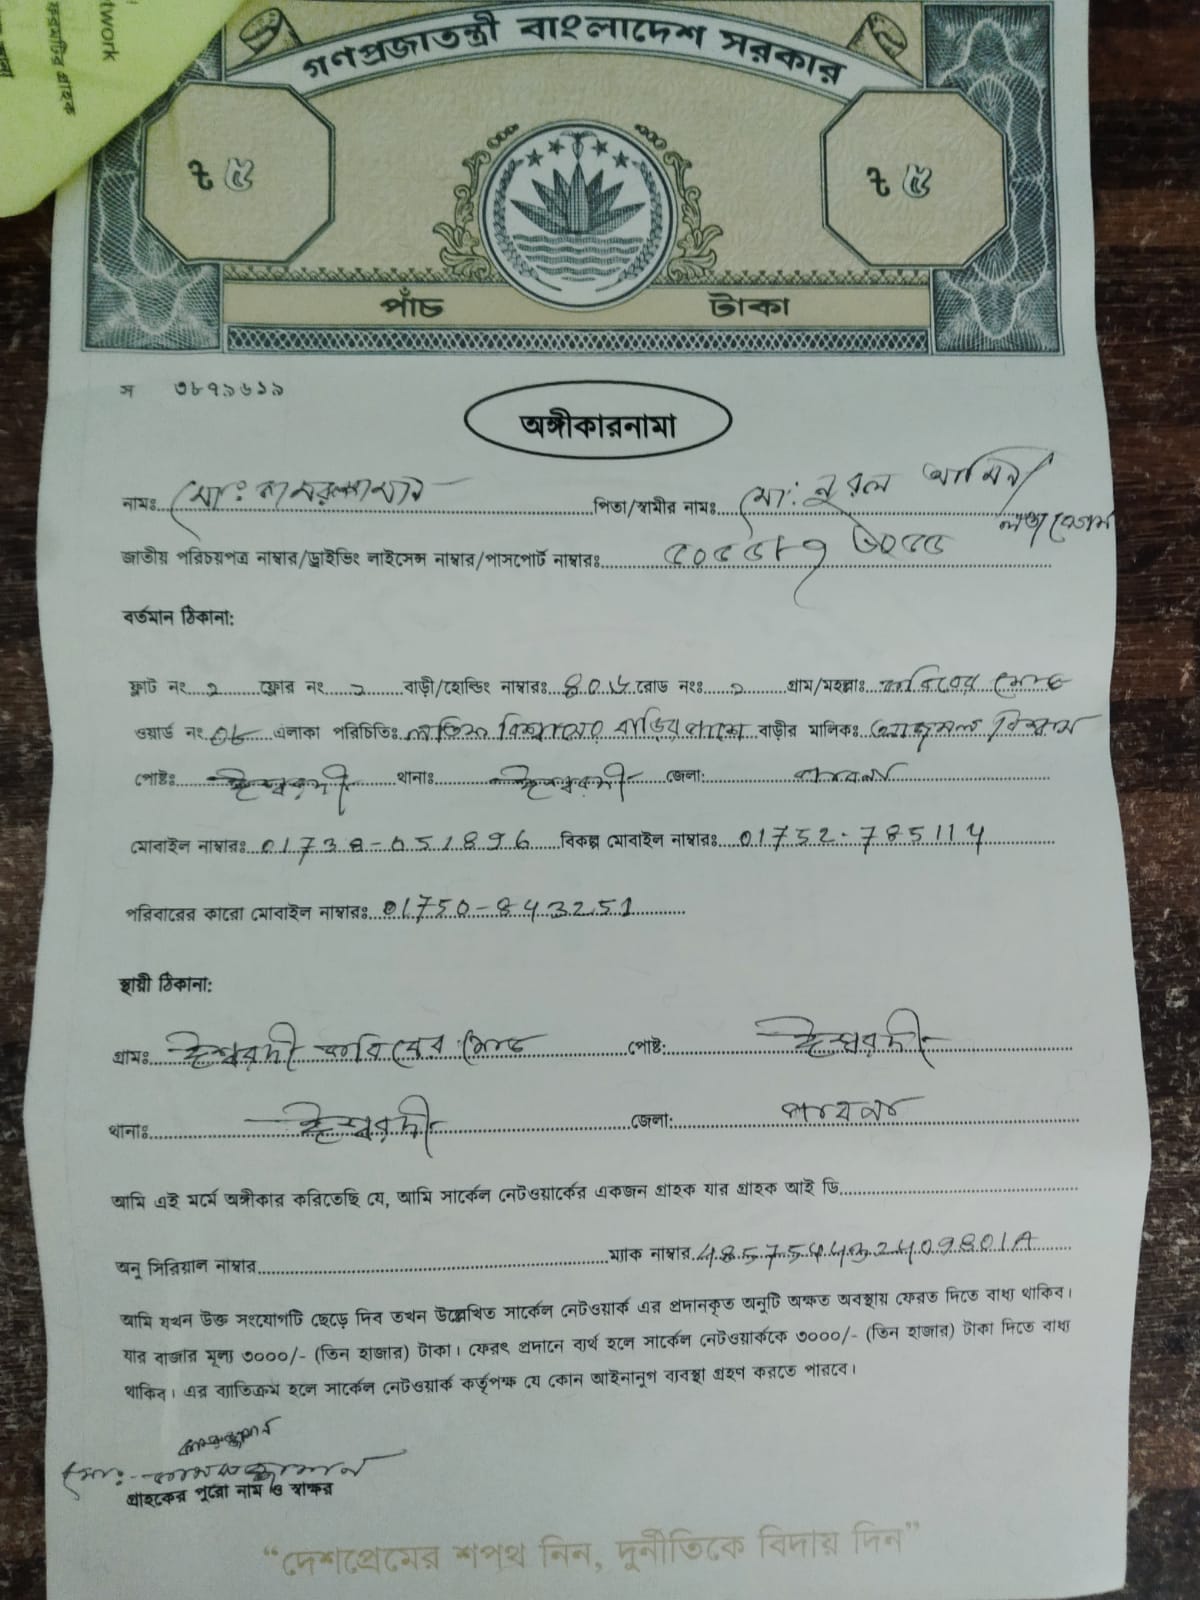 twork
গণপ্রজাতন্ত্রী বাংলাদেশ সরকার
ট ৫ ট ৫
পাঁচ টাকা
স ৩৮৭৯৬১৯
অঙ্গীকারনামা
নামঃ মোঃ কামরুজ্জামান পিতা/স্বামীর নামঃ মোঃ নুরুল আমিন/
জাতীয় পরিচয়পত্র নাম্বার/ড্রাইভিং লাইসেন্স নাম্বার/পাসপোর্ট নাম্বারঃ
বর্তমান ঠিকানা:
ফ্লাট নং ২ ফ্লোর নং বাড়ী/হোল্ডিং নাম্বারঃ রোড নংঃ গ্রাম/মহল্লাঃ
ওয়ার্ড নং ০৮ এলাকা পরিচিতিঃ বিশ্বাসের বাড়ির পাশে বাড়ীর মালিকঃ বিশ্বাস
পোষ্টঃ ঈশ্বরদী থানাঃ ঈশ্বরদী জেলা: পাবনা
মোবাইল নাম্বারঃ 01738-051896 বিকল্প মোবাইল নাম্বারঃ 01752-785114
পরিবারের কারো মোবাইল নাম্বারঃ 01750-843251
স্থায়ী ঠিকানা:
গ্রামঃ ঈশ্বরদী পোষ্ট: ঈশ্বরদী
থানাঃ ঈশ্বরদী জেলা: পাবনা
আমি এই মর্মে অঙ্গীকার করিতেছি যে, আমি সার্কেল নেটওয়ার্কের একজন গ্রাহক যার গ্রাহক আই ডি
অনু সিরিয়াল নাম্বার ম্যাক নাম্বার
আমি যখন উক্ত সংযোগটি ছেড়ে দিব তখন উল্লেখিত সার্কেল নেটওয়ার্ক এর প্রদানকৃত অনুটি অক্ষত অবস্থায় ফেরত দিতে বাধ্য থাকিব।
যার বাজার মূল্য ৩০০০/- (তিন হাজার) টাকা। ফেরৎ প্রদানে ব্যর্থ হলে সার্কেল নেটওয়ার্ককে ৩০০০/- (তিন হাজার) টাকা দিতে বাধ্য
থাকিব। এর ব্যাতিক্রম হলে সার্কেল নেটওয়ার্ক কর্তৃপক্ষ যে কোন আইনানুগ ব্যবস্থা গ্রহণ করতে পারবে।
মোঃ কামরুজ্জামান
গ্রাহকের পুরো নাম ও স্বাক্ষর
“দেশপ্রেমের শপথ নিন, দুর্নীতিকে বিদায় দিন”